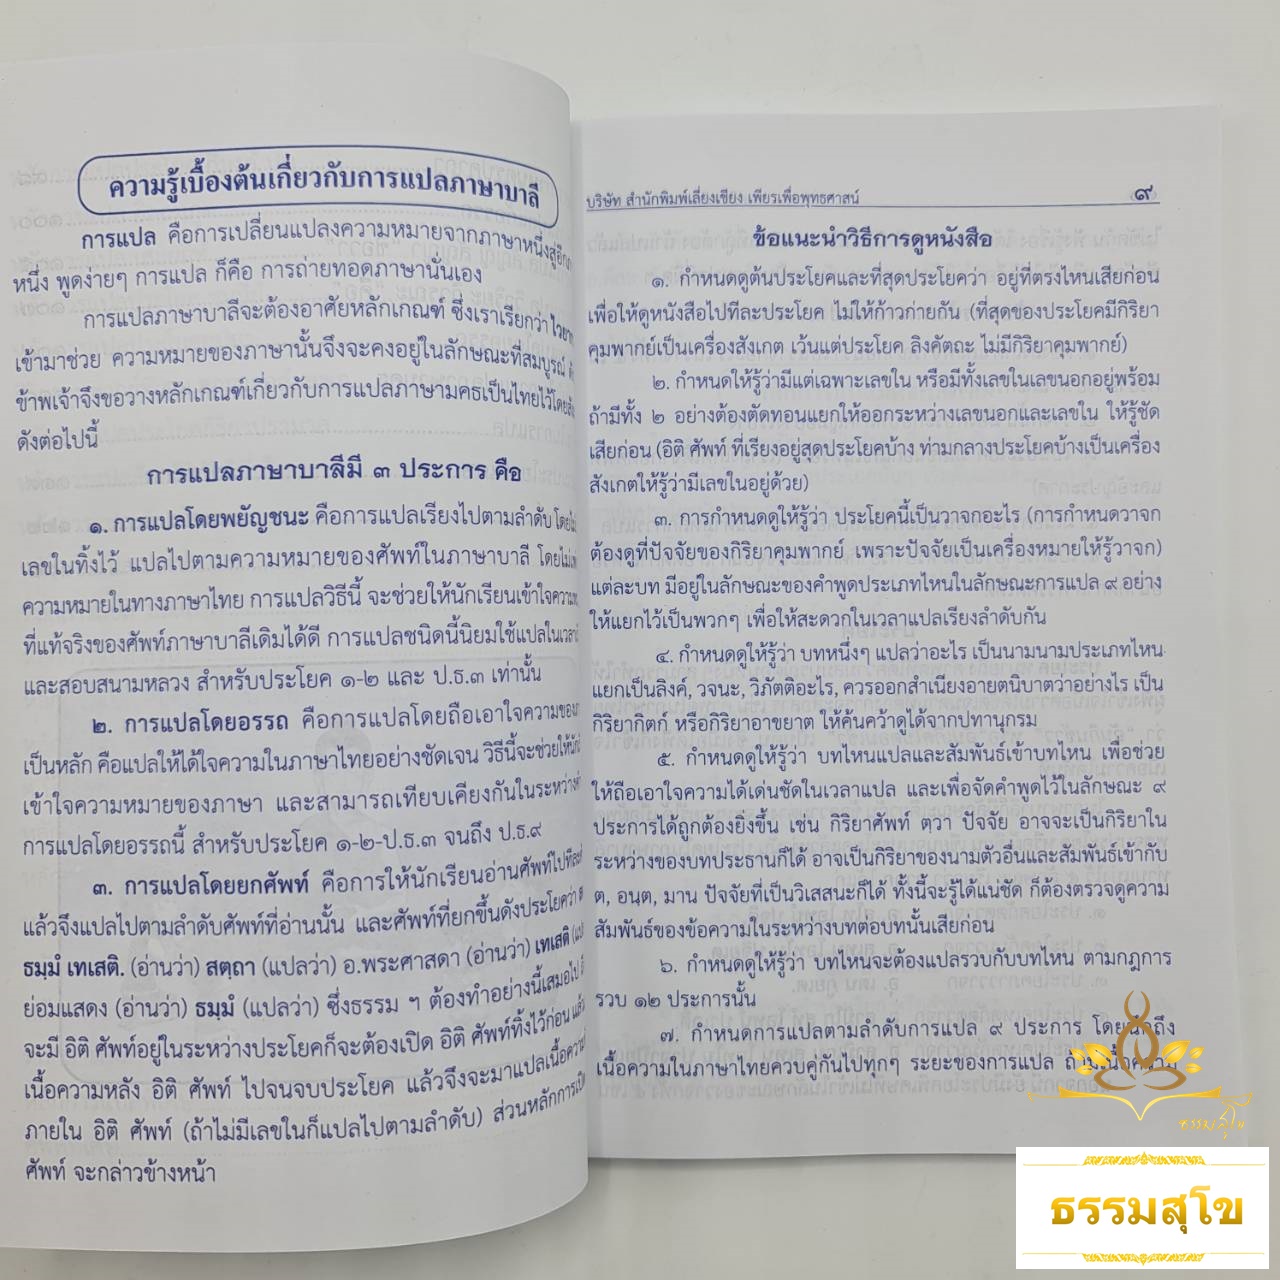 ความรู้เบื้องต้นเกี่ยวกับการแปลภาษาบาลี
การแปล คือการเปลี่ยนแปลงความหมายจากภาษาหนึ่งสู่อีก
หนึ่ง พูดง่ายๆ การแปล ก็คือ การถ่ายทอดภาษานั่นเอง
การแปลภาษาบาลีจะต้องอาศัยหลักเกณฑ์ ซึ่งเราเรียกว่า
เข้ามาช่วย ความหมายของภาษานั้นจึงจะคงอยู่ในลักษณะที่สมบูรณ์
ข้าพเจ้าจึงขอวางหลักเกณฑ์เกี่ยวกับการแปลภาษามคธเป็นไทยไว้โดย
ดังต่อไปนี้
การแปลภาษาบาลีมี ๓ ประการ คือ
๑. การแปลโดยพยัญชนะ คือการแปลเรียงไปตามลำดับ โดย
เลขในทิ้งไว้ แปลไปตามความหมายของศัพท์ในภาษาบาลี โดย
ความหมายในทางภาษาไทย การแปลวิธีนี้ จะช่วยให้นักเรียนเข้าใจ
ที่แท้จริงของศัพท์ภาษาบาลีเดิมได้ดี การแปลชนิดนี้นิยมใช้แปลใน
และสอบสนามหลวง สำหรับประโยค ๑-๒ และ ป.ธ.๓ เท่านั้น
๒. การแปลโดยอรรถ คือการแปลโดยถือเอาใจความของ
เป็นหลัก คือแปลให้ได้ใจความในภาษาไทยอย่างชัดเจน วิธีนี้จะช่วยให้
เข้าใจความหมายของภาษา และสามารถเทียบเคียงกันในระหว่าง
การแปลโดยอรรถนี้ สำหรับประโยค ๑-๒-ป.ธ.๓ จนถึง ป.ธ.๙
๓. การแปลโดยยกศัพท์ คือการให้นักเรียนอ่านศัพท์ไปที
แล้วจึงแปลไปตามลำดับศัพท์ที่อ่านนั้น และศัพท์ที่ยกขึ้นดังประโยคว่า
ธมฺมํ เทเสติ. (อ่านว่า) สตฺถา (แปลว่า) อ.พระศาสดา (อ่านว่า) เทเสติ
ย่อมแสดง (อ่านว่า) ธมฺมํ (แปลว่า) ซึ่งธรรม ฯ ต้องทำอย่างนี้เสมอไป
จะมี อิติ ศัพท์อยู่ในระหว่างประโยคก็จะต้องเปิด อิติ ศัพท์ทิ้งไว้ก่อน แล้ว
เนื้อความหลัง อิติ ศัพท์ ไปจนจบประโยค แล้วจึงจะมาแปลเนื้อความ
ภายใน อิติ ศัพท์ (ถ้าไม่มีเลขในก็แปลไปตามลำดับ) ส่วนหลักการ
ศัพท์ จะกล่าวข้างหน้า
บริษัท สำนักพิมพ์เลี่ยงเชียง เพียรเพื่อพุทธศาสน์ ๙
ข้อแนะนำวิธีการดูหนังสือ
๑. กำหนดดูต้นประโยคและที่สุดประโยคว่า อยู่ที่ตรงไหนเสียก่อน
เพื่อให้ดูหนังสือไปทีละประโยค ไม่ให้ก้าวก่ายกัน (ที่สุดของประโยคมีกิริยา
คุมพากย์เป็นเครื่องสังเกต เว้นแต่ประโยค ลิงคัตถะ ไม่มีกิริยาคุมพากย์)
๒. กำหนดให้รู้ว่ามีแต่เฉพาะเลขใน หรือมีทั้งเลขในเลขนอกอยู่พร้อม
ถ้ามีทั้ง ๒ อย่างต้องตัดทอนแยกให้ออกระหว่างเลขนอกและเลขใน ให้รู้ชัด
เสียก่อน (อิติ ศัพท์ ที่เรียงอยู่สุดประโยคบ้าง ท่ามกลางประโยคบ้างเป็นเครื่อง
สังเกตให้รู้ว่ามีเลขในอยู่ด้วย)
๓. การกำหนดดูให้รู้ว่า ประโยคนี้เป็นวาจกอะไร (การกำหนดวาจก
ต้องดูที่ปัจจัยของกิริยาคุมพากย์ เพราะปัจจัยเป็นเครื่องหมายให้รู้วาจก)
แต่ละบท มีอยู่ในลักษณะของคำพูดประเภทไหนในลักษณะการแปล ๙ อย่าง
ให้แยกไว้เป็นพวกๆ เพื่อให้สะดวกในเวลาแปลเรียงลำดับกัน
๔. กำหนดดูให้รู้ว่า บทหนึ่งๆ แปลว่าอะไร เป็นนามนามประเภทไหน
แยกเป็นลิงค์, วจนะ, วิภัตติอะไร, ควรออกสำเนียงอายตนิบาตว่าอย่างไร เป็น
กิริยากิตก์ หรือกิริยาอาขยาต ให้ค้นคว้าดูได้จากปทานุกรม
๕. กำหนดดูให้รู้ว่า บทไหนแปลและสัมพันธ์เข้าบทไหน เพื่อช่วย
ให้ถือเอาใจความได้เด่นชัดในเวลาแปล และเพื่อจัดคำพูดไว้ในลักษณะ ๙
ประการได้ถูกต้องยิ่งขึ้น เช่น กิริยาศัพท์ ตฺวา ปัจจัย อาจจะเป็นกิริยาใน
ระหว่างของบทประธานก็ได้ อาจเป็นกิริยาของนามตัวอื่นและสัมพันธ์เข้ากับ
ต, อนฺต, มาน ปัจจัยที่เป็นวิเสสนะก็ได้ ทั้งนี้จะรู้ได้แน่ชัด ก็ต้องตรวจดูความ
สัมพันธ์ของข้อความในระหว่างบทต่อบทนั้นเสียก่อน
๖. กำหนดดูให้รู้ว่า บทไหนจะต้องแปลรวบกับบทไหน ตามกฎการ
รวบ ๑๒ ประการนั้น
๗. กำหนดการแปลตามลำดับการแปล ๙ ประการ โดยนึกถึง
เนื้อความในภาษาไทยควบคู่กันไปทุกๆ ระยะของการแปล ถ้าเนื้อความ
ธรรมสุโข
ธรรมสุโข